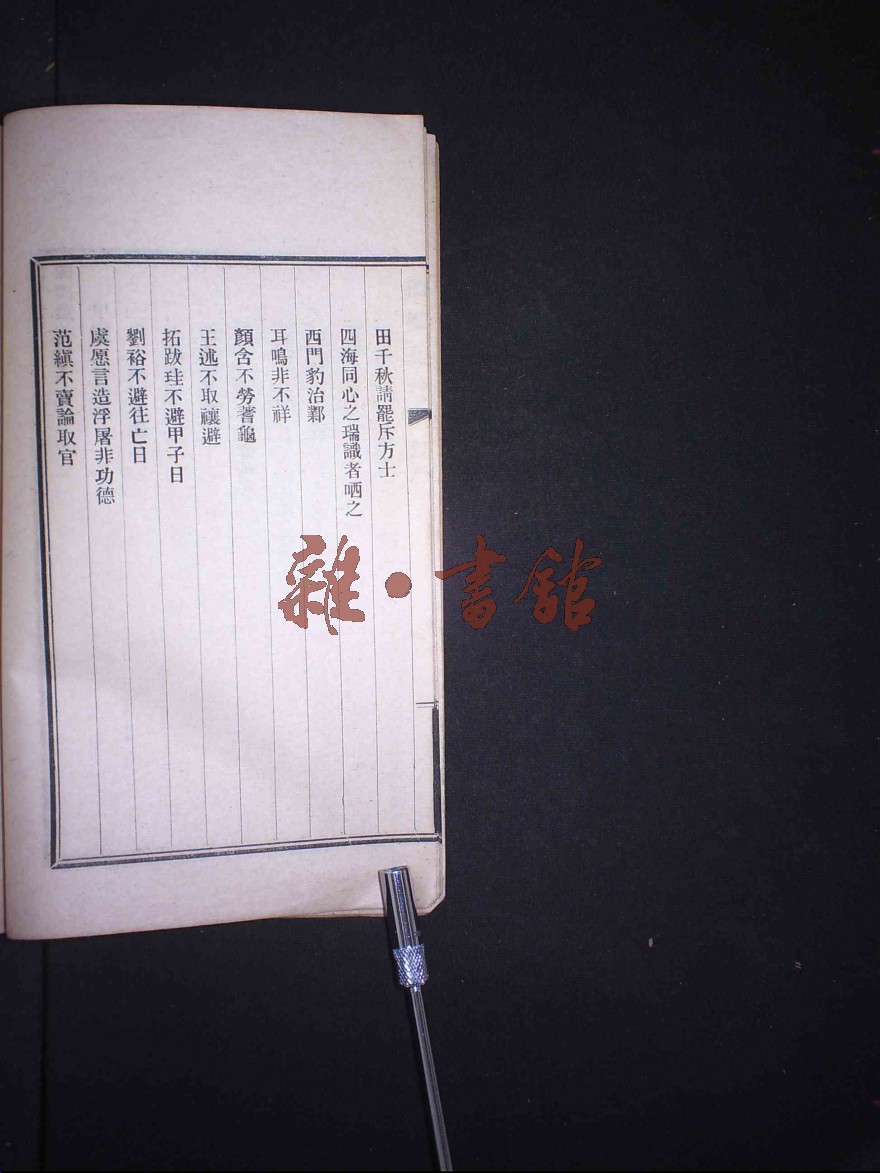 田千秋請罷斥方士
四海同心之瑞識者哂之
西門豹治鄴
耳鳴非不祥
顏含不勞蓍龜
王述不取禳避
拓跋珪不避甲子日
劉裕不避往亡日
虞愿言造浮屠非功德
范縝不賣論取官
雜·書館